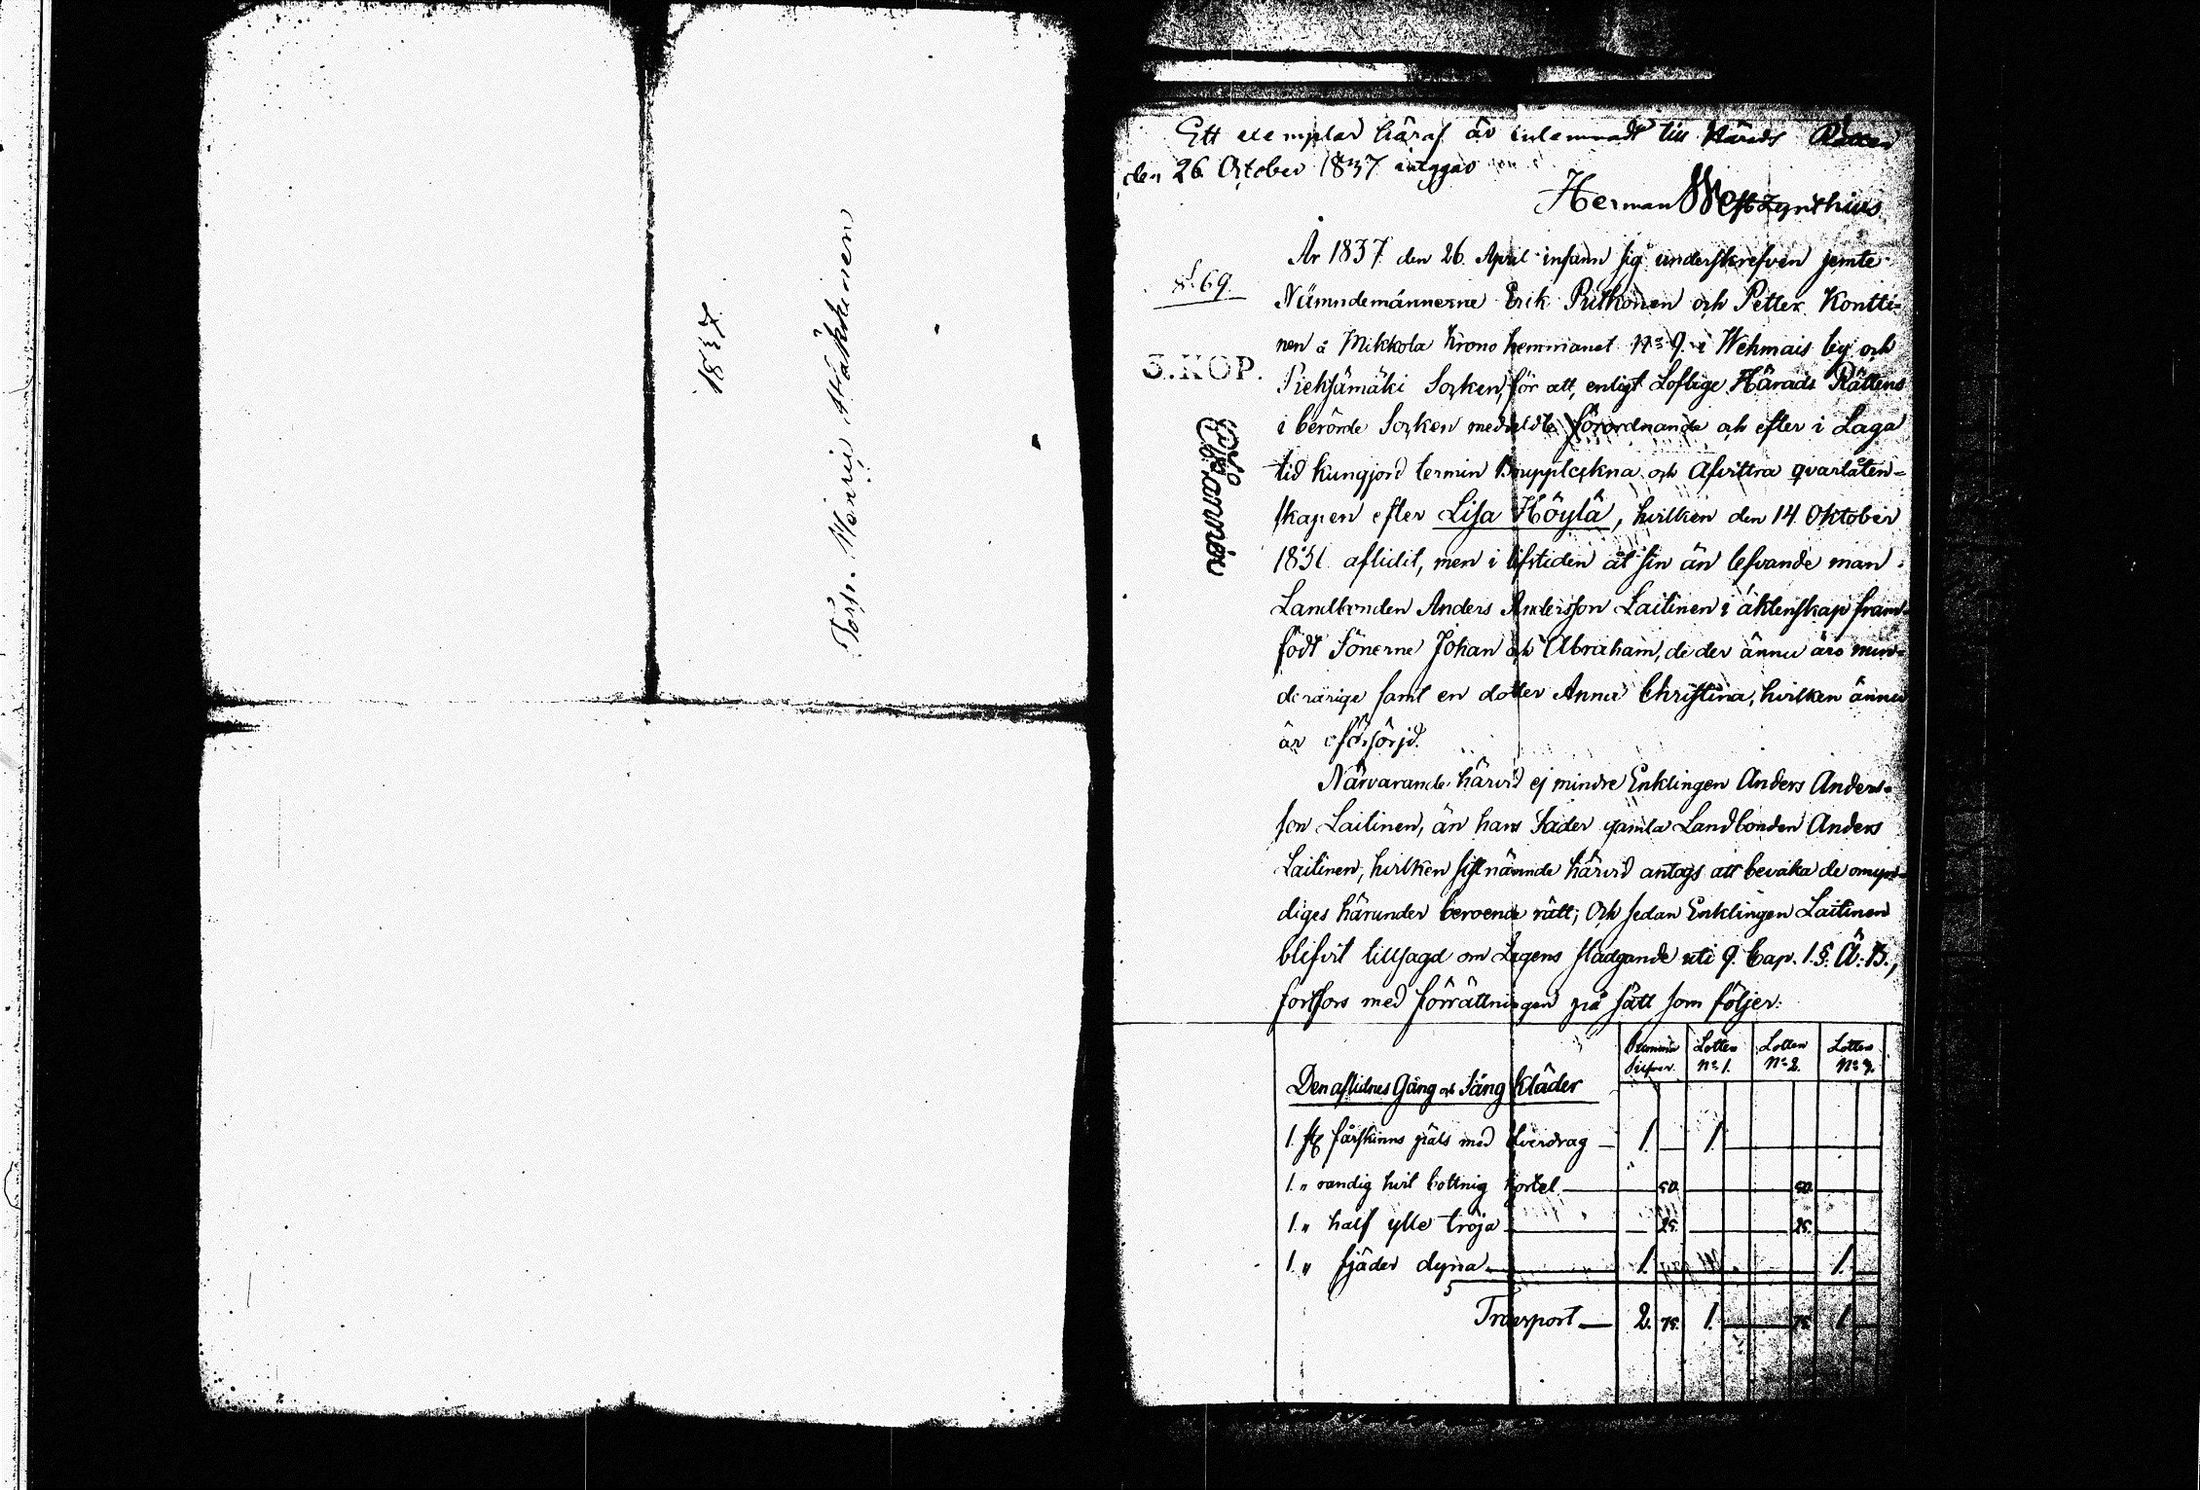 1837.
Torp. Maria Häkkinen
Ett exemplar häraf är inlemnadt till Härads Rätten
den 26 October 1837 intygar
Herman Westzynthius
№ 69.
3. KOP.
År 1837 den 26. April infann sig underskrefven jemte
Nämndemännerne Erik Pulkonen och Petter Kontti-
nen å Mikkola Krono hemmanet N:o 9. i Wehmais by och
Pieksämäki Socken, för att, enligt Loflige Härads Rättens
i berörde Socken meddeldte förordnande och efter i Laga
tid kungjord termin upptekna och Afvittra qvarlåten-
skapen efter Lisa Höylä, hvilken den 14 Oktober
1831. aflidit, men i lifstiden åt sin än lefvande man
Landbonden Anders Andersson Laitinen i äktenskap fram-
födt Sönerne Johan och Abraham, de der ännu äro min-
derårige samt en dotter Anna Christina, hvilken ännu
är oförsörjd.
Närvarande härvid ej mindre Enklingen Anders Anders-
son Laitinen, än hans Fader gamla Landbonden Anders
Laitinen, hvilken sistnämnde härvid antags att bevaka de omyn-
diges härunder beroende rätt; Och sedan Enklingen Laitinen
blifvit tillsagd om Lagens stadgande uti 9. Cap. 1. §. Ä. B.,
fortfors med förrättningen på sätt som följer:
Summa Silfver. Lotten N:o 1. Lotten N:o 2. Lotten N:o 3.
Den aflidnes Gång och Säng kläder
1. st fårskinns päls med öfverdrag — 1. — 1. —
1. " randig hvit bottnig kortel — 50. — 50. —
1. " half ylle tröja — 25. — 25. —
1. " fjäder dyna — 1. — 1. —
Transport — 2. 75. 1. — 75. 1. —